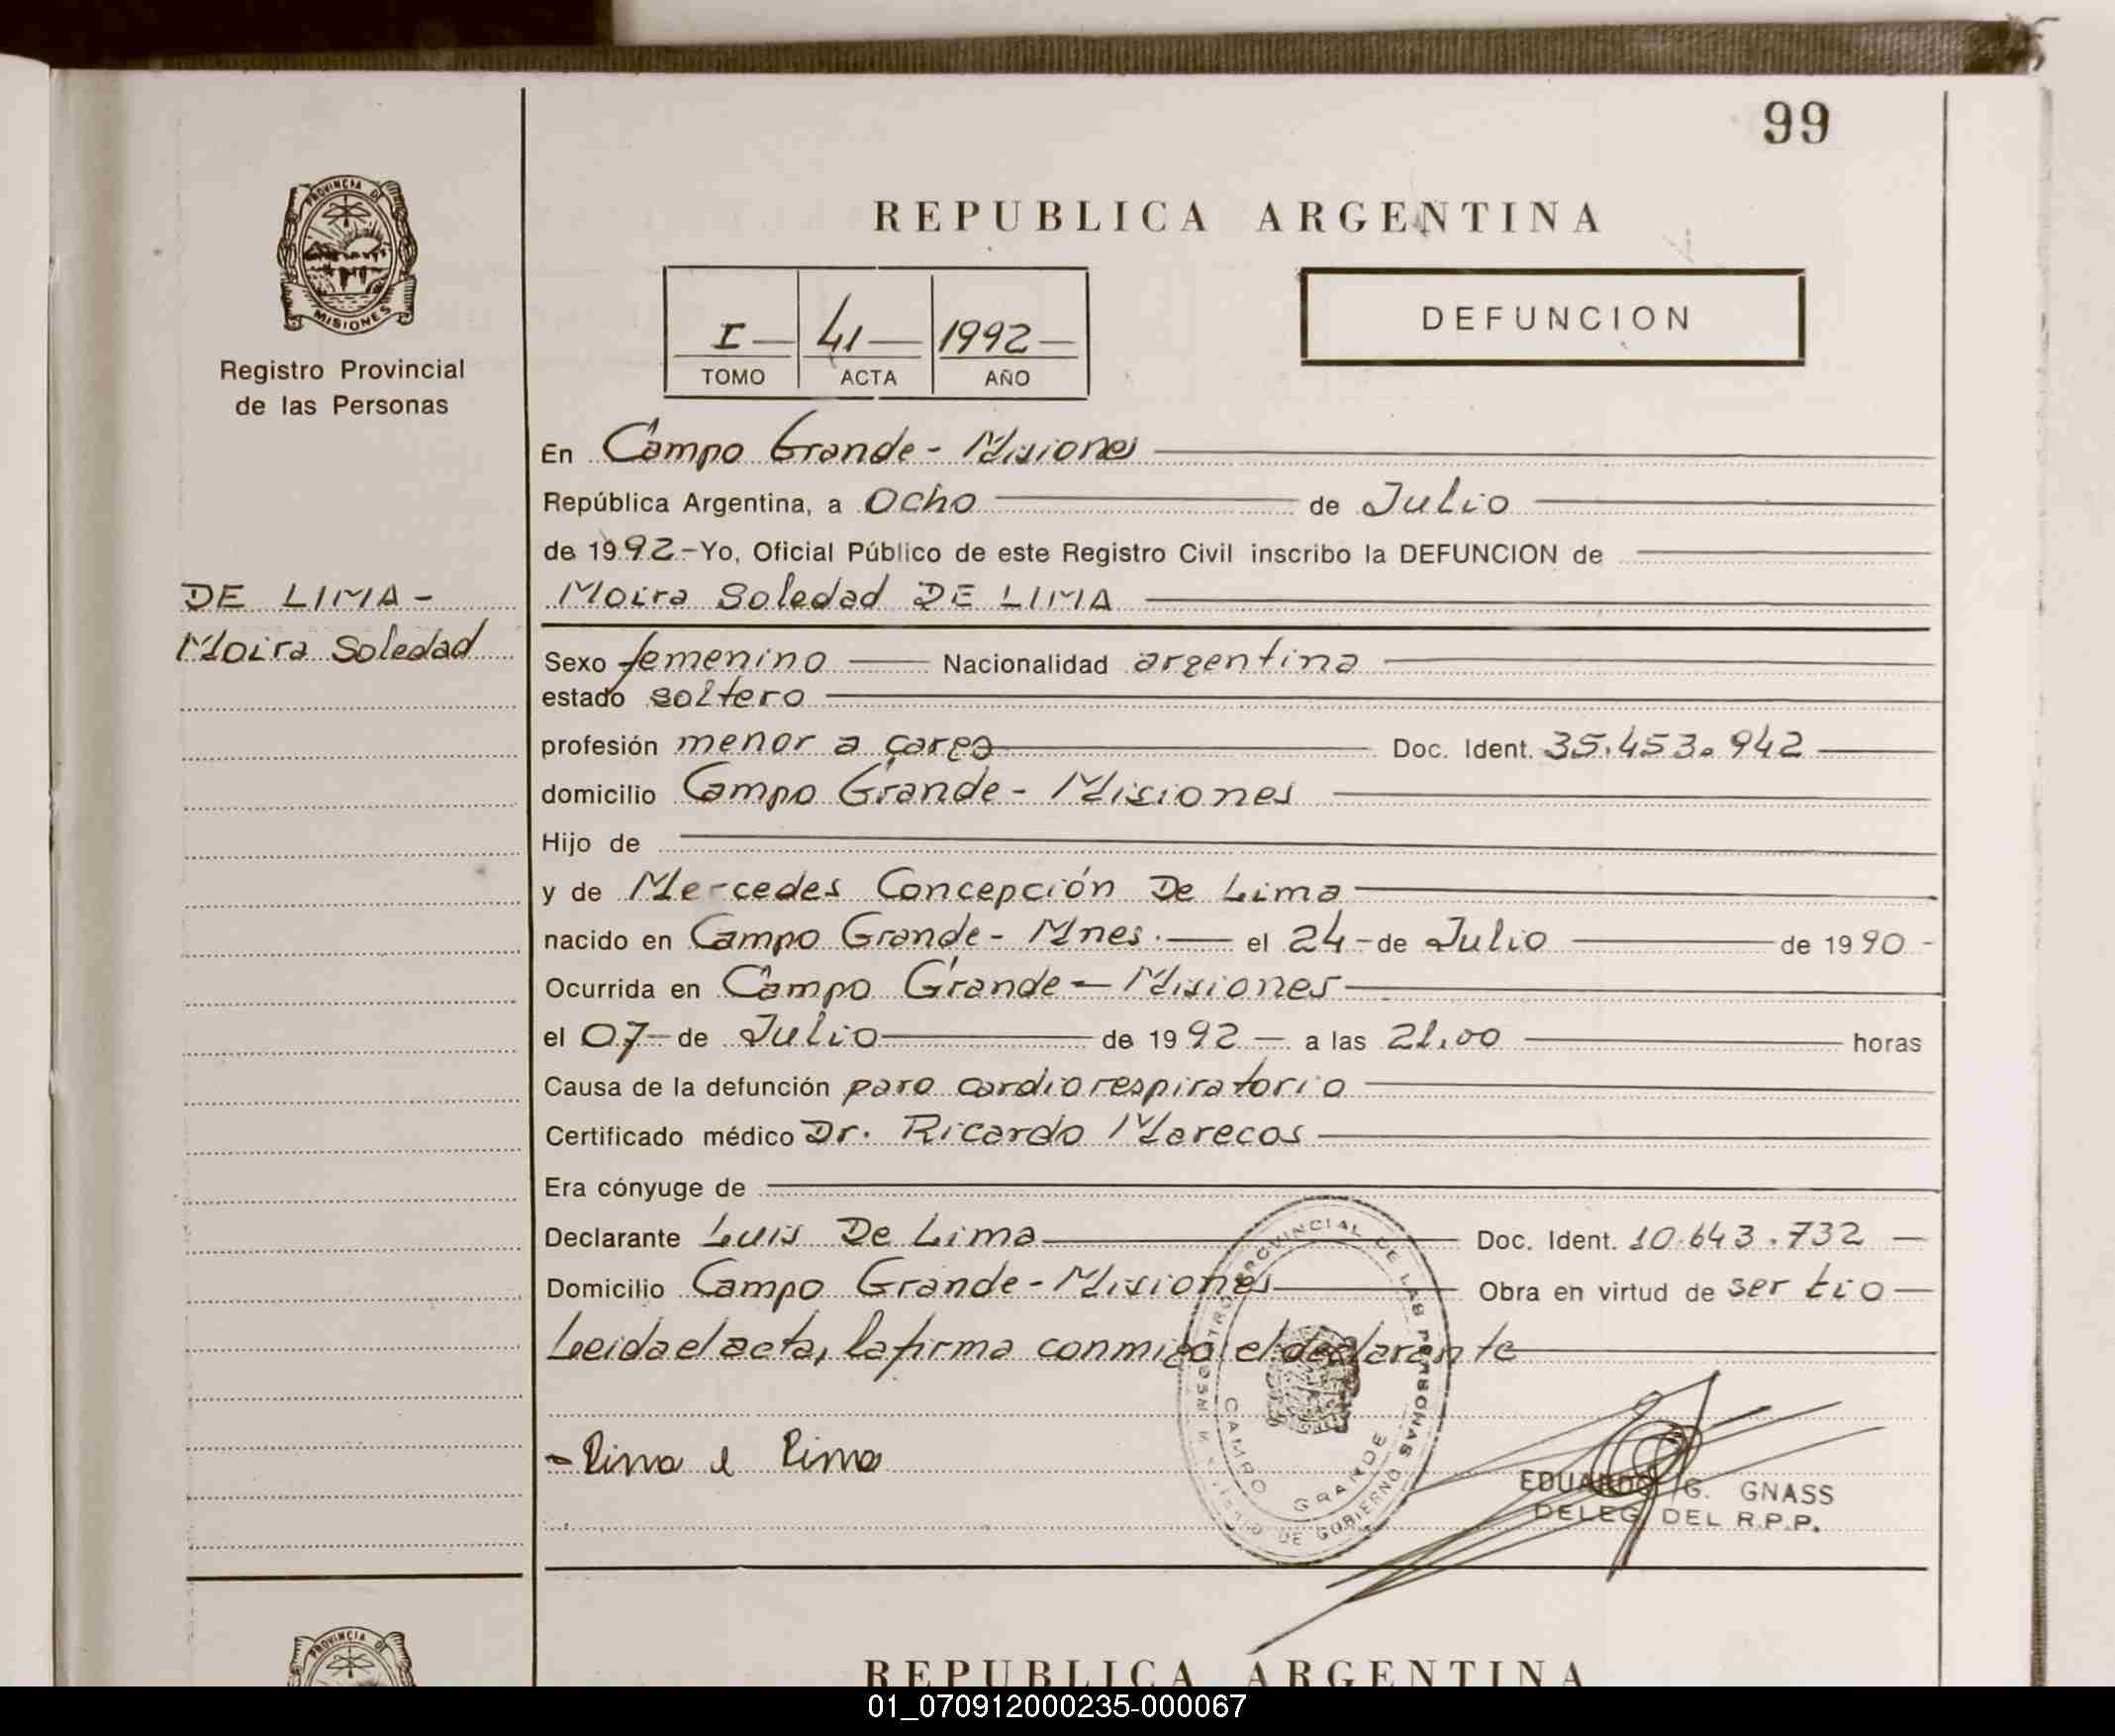 99
PROVINCIA DE
MISIONES
Registro Provincial
de las Personas
REPUBLICA ARGENTINA
I 41 1992
TOMO ACTA AÑO
DEFUNCION
En Campo Grande - Misiones
República Argentina, a Ocho de Julio
de 1992.- Yo, Oficial Público de este Registro Civil inscribo la DEFUNCION de
DE LIMA -
Moira Soledad
Moira Soledad DE LIMA
Sexo femenino Nacionalidad argentina
estado soltero
profesión menor a cargo Doc. Ident. 35.453.942
domicilio Campo Grande - Misiones
Hijo de
y de Mercedes Concepción De Lima
nacido en Campo Grande - Mnes. el 24 - de Julio de 1990 -
Ocurrida en Campo Grande - Misiones
el 07 - de Julio de 1992 - a las 21,00 horas
Causa de la defunción paro cardiorespiratorio
Certificado médico Dr. Ricardo Marecos
Era cónyuge de
Declarante Luis De Lima Doc. Ident. 10.643.732 -
Domicilio Campo Grande - Misiones Obra en virtud de ser tio -
Leida el acta, la firma conmigo el declarante
PROVINCIAL DE LAS PERSONAS
CAMPO GRANDE
DE GOBIERNO
EDUARDO G. GNASS
DELEG. DEL R.P.P.
PROVINCIA DE
REPUBLICA ARGENTINA
01_070912000235-000067